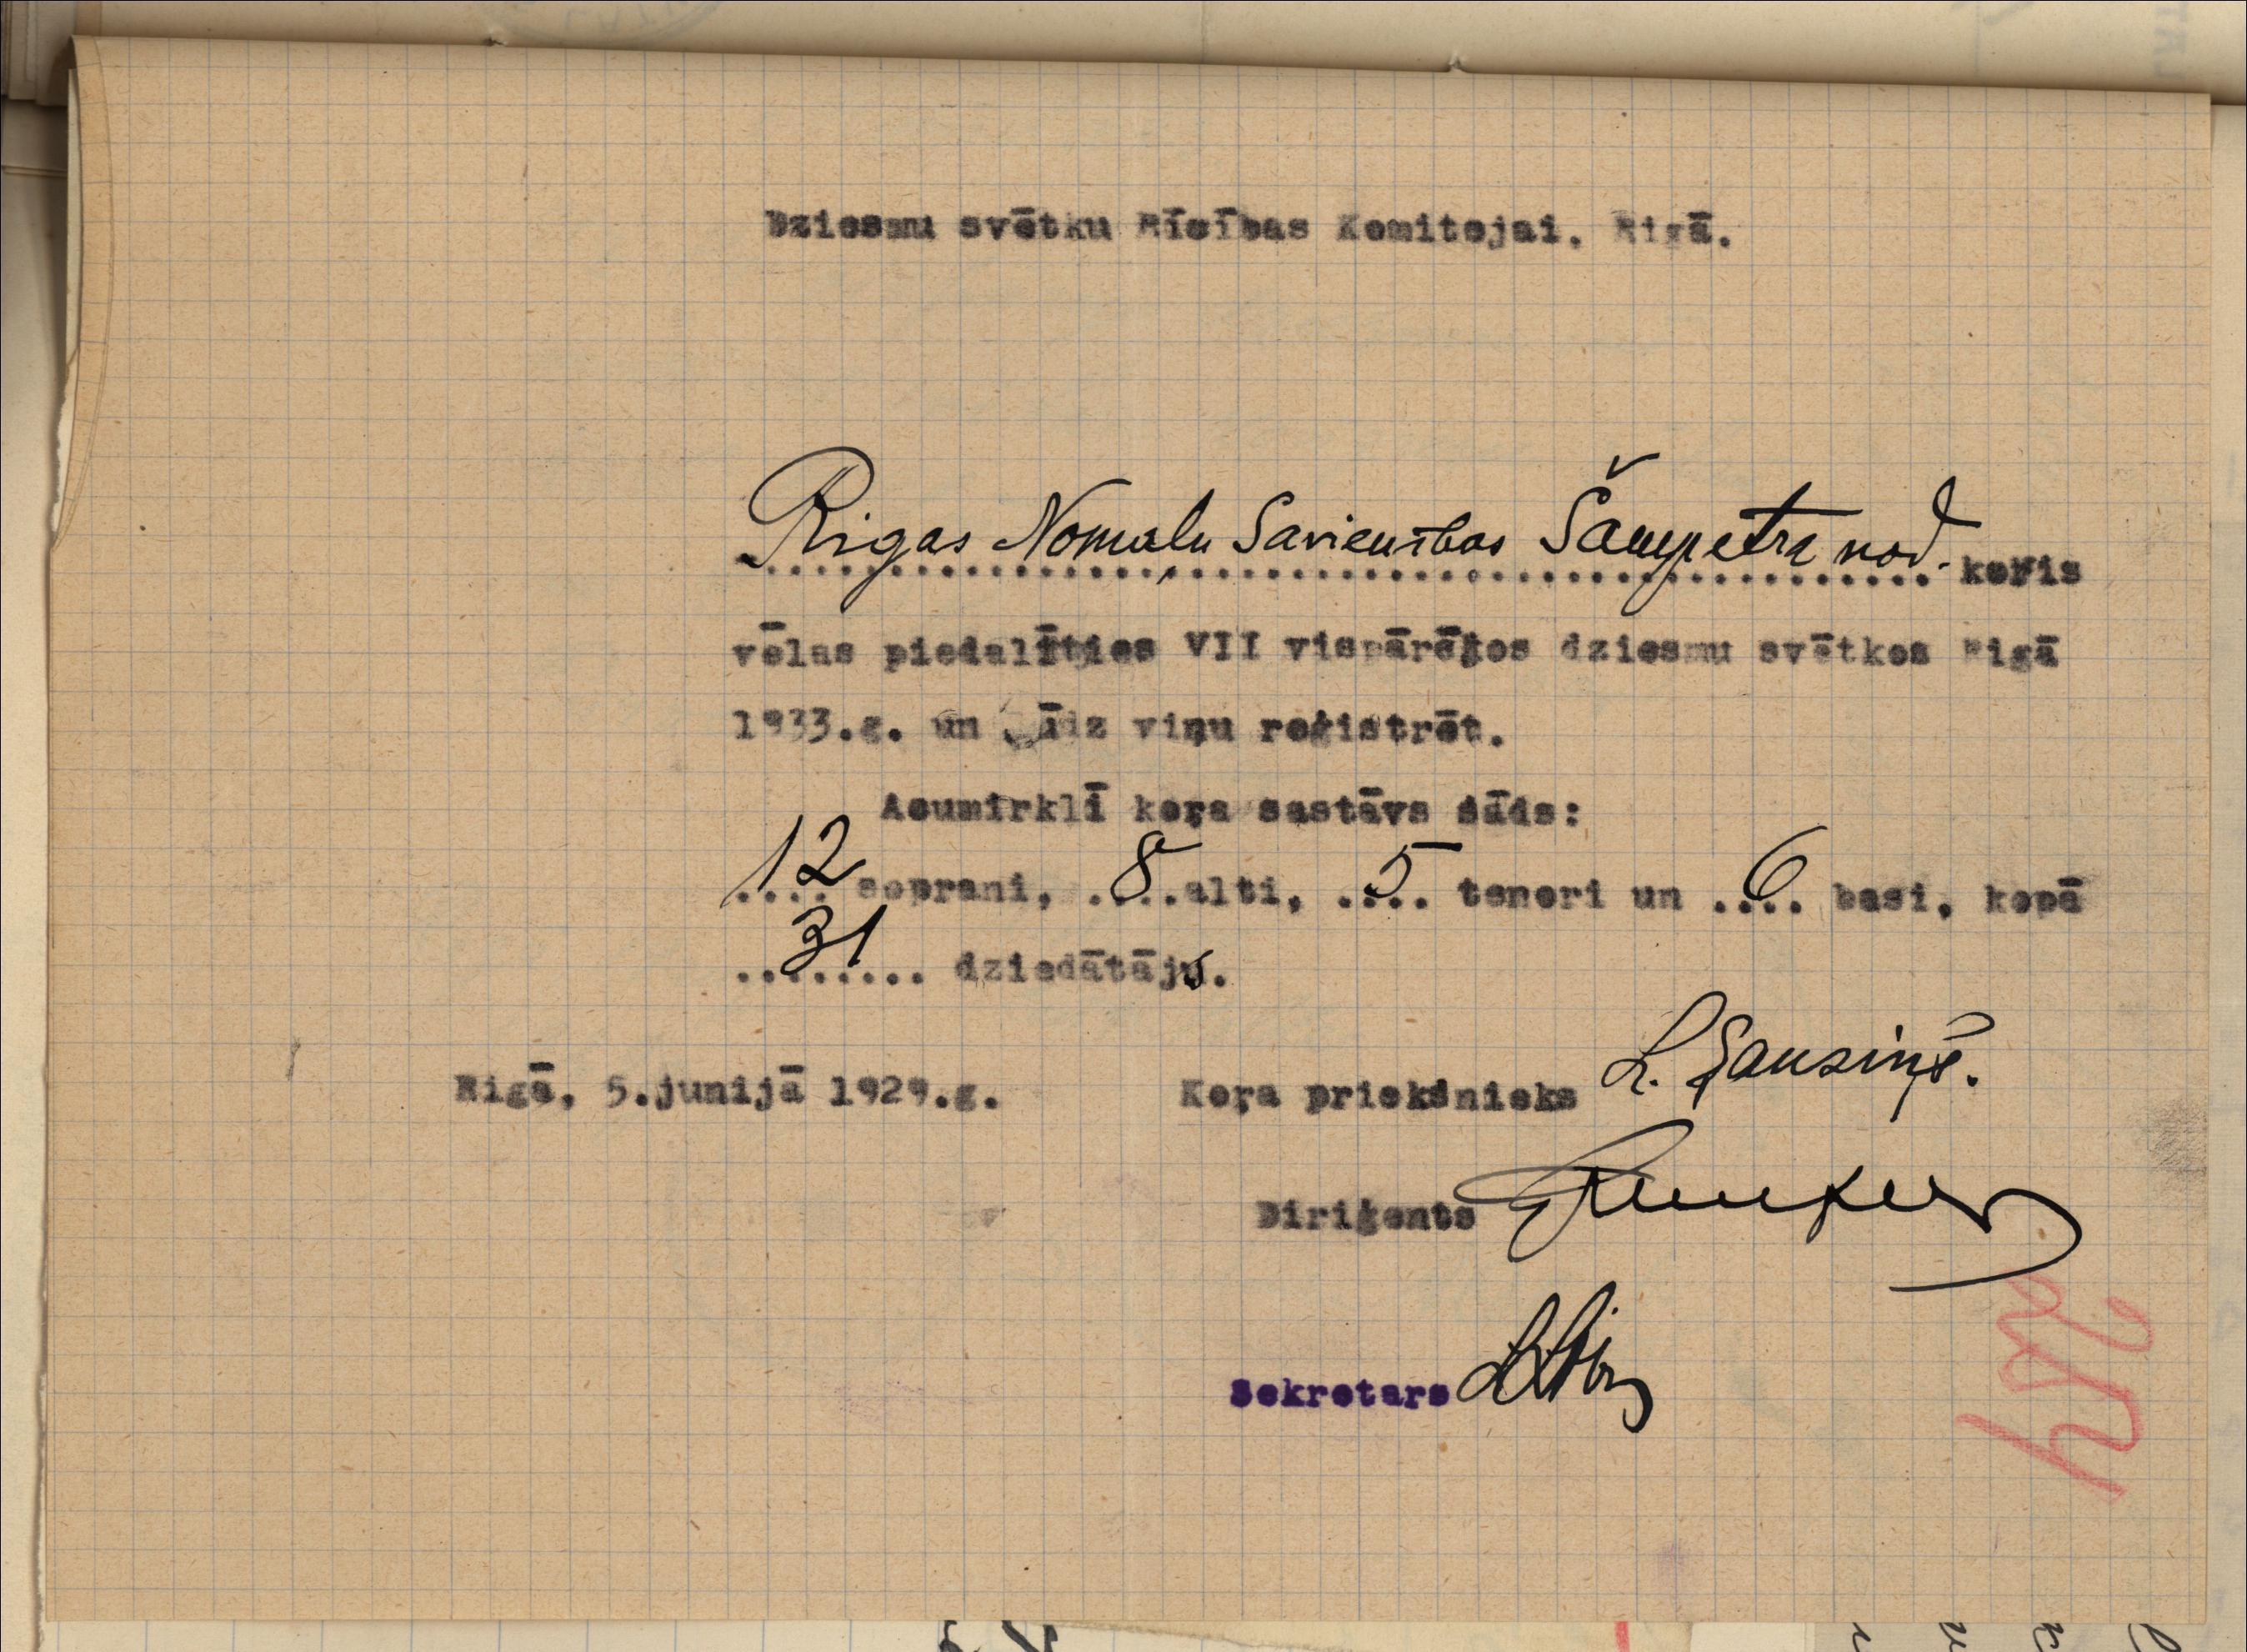 Dziesmu svētku Rīcības Komitejai. Rigā.
Rigas Nomaļu Savienības Šampetra nod. koris
vēlas piedalīties VII vispārējos dziesmu svētkos Rigā
1933.g. un lūdz viņu reģistrēt.
Acumirklī koŗa sastāvs šāds:
12 soprani, 8 alti, 5 tenori un 6 basi, kopā
31 dziedātājs.
Rigā, 5.junijā 1929.g.
Koŗa priekšnieks L. Gausiņš.
Diriģents
Sekretars